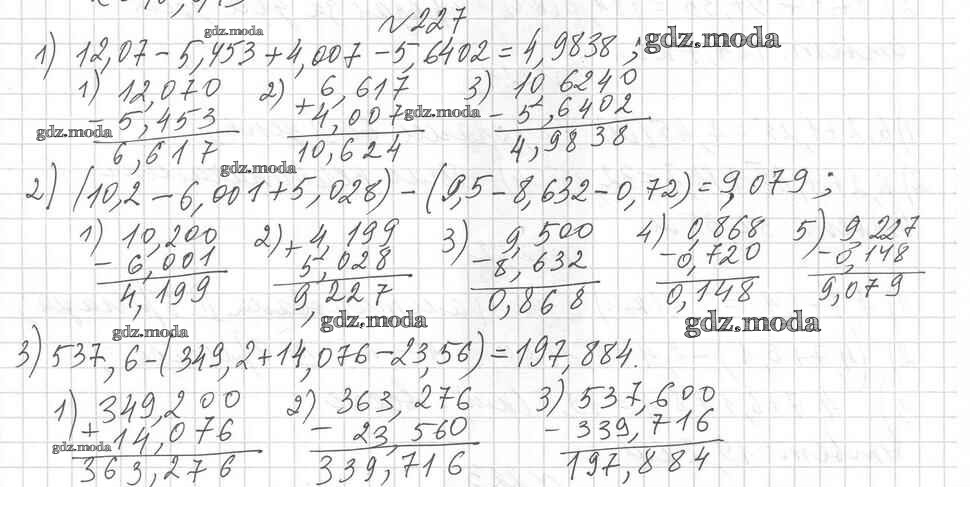 №227
1) 12,07 - 5,453 + 4,007 - 5,6402 = 4,9838 ; gdz.moda
gdz.moda
1) 12,070 2) 6,617 3) 10,6240
- 5,453 + 4,007 - 5,6402
gdz.moda gdz.moda
6,617 10,624 4,9838
gdz.moda
2) (10,2 - 6,001 + 5,028) - (9,5 - 8,632 - 0,72) = 9,079 ;
1) 10,200 2) + 4,199 3) 9,500 4) 0,868 5) 9,227
- 6,001 5,028 - 8,632 - 0,720 - 0,148
4,199 9,227 0,868 0,148 9,079
gdz.moda gdz.moda gdz.moda
3) 537,6 - (349,2 + 14,076 - 23,56) = 197,884.
1) 349,200 2) 363,276 3) 537,600
+ 14,076 - 23,560 - 339,716
gdz.moda
363,276 339,716 197,884